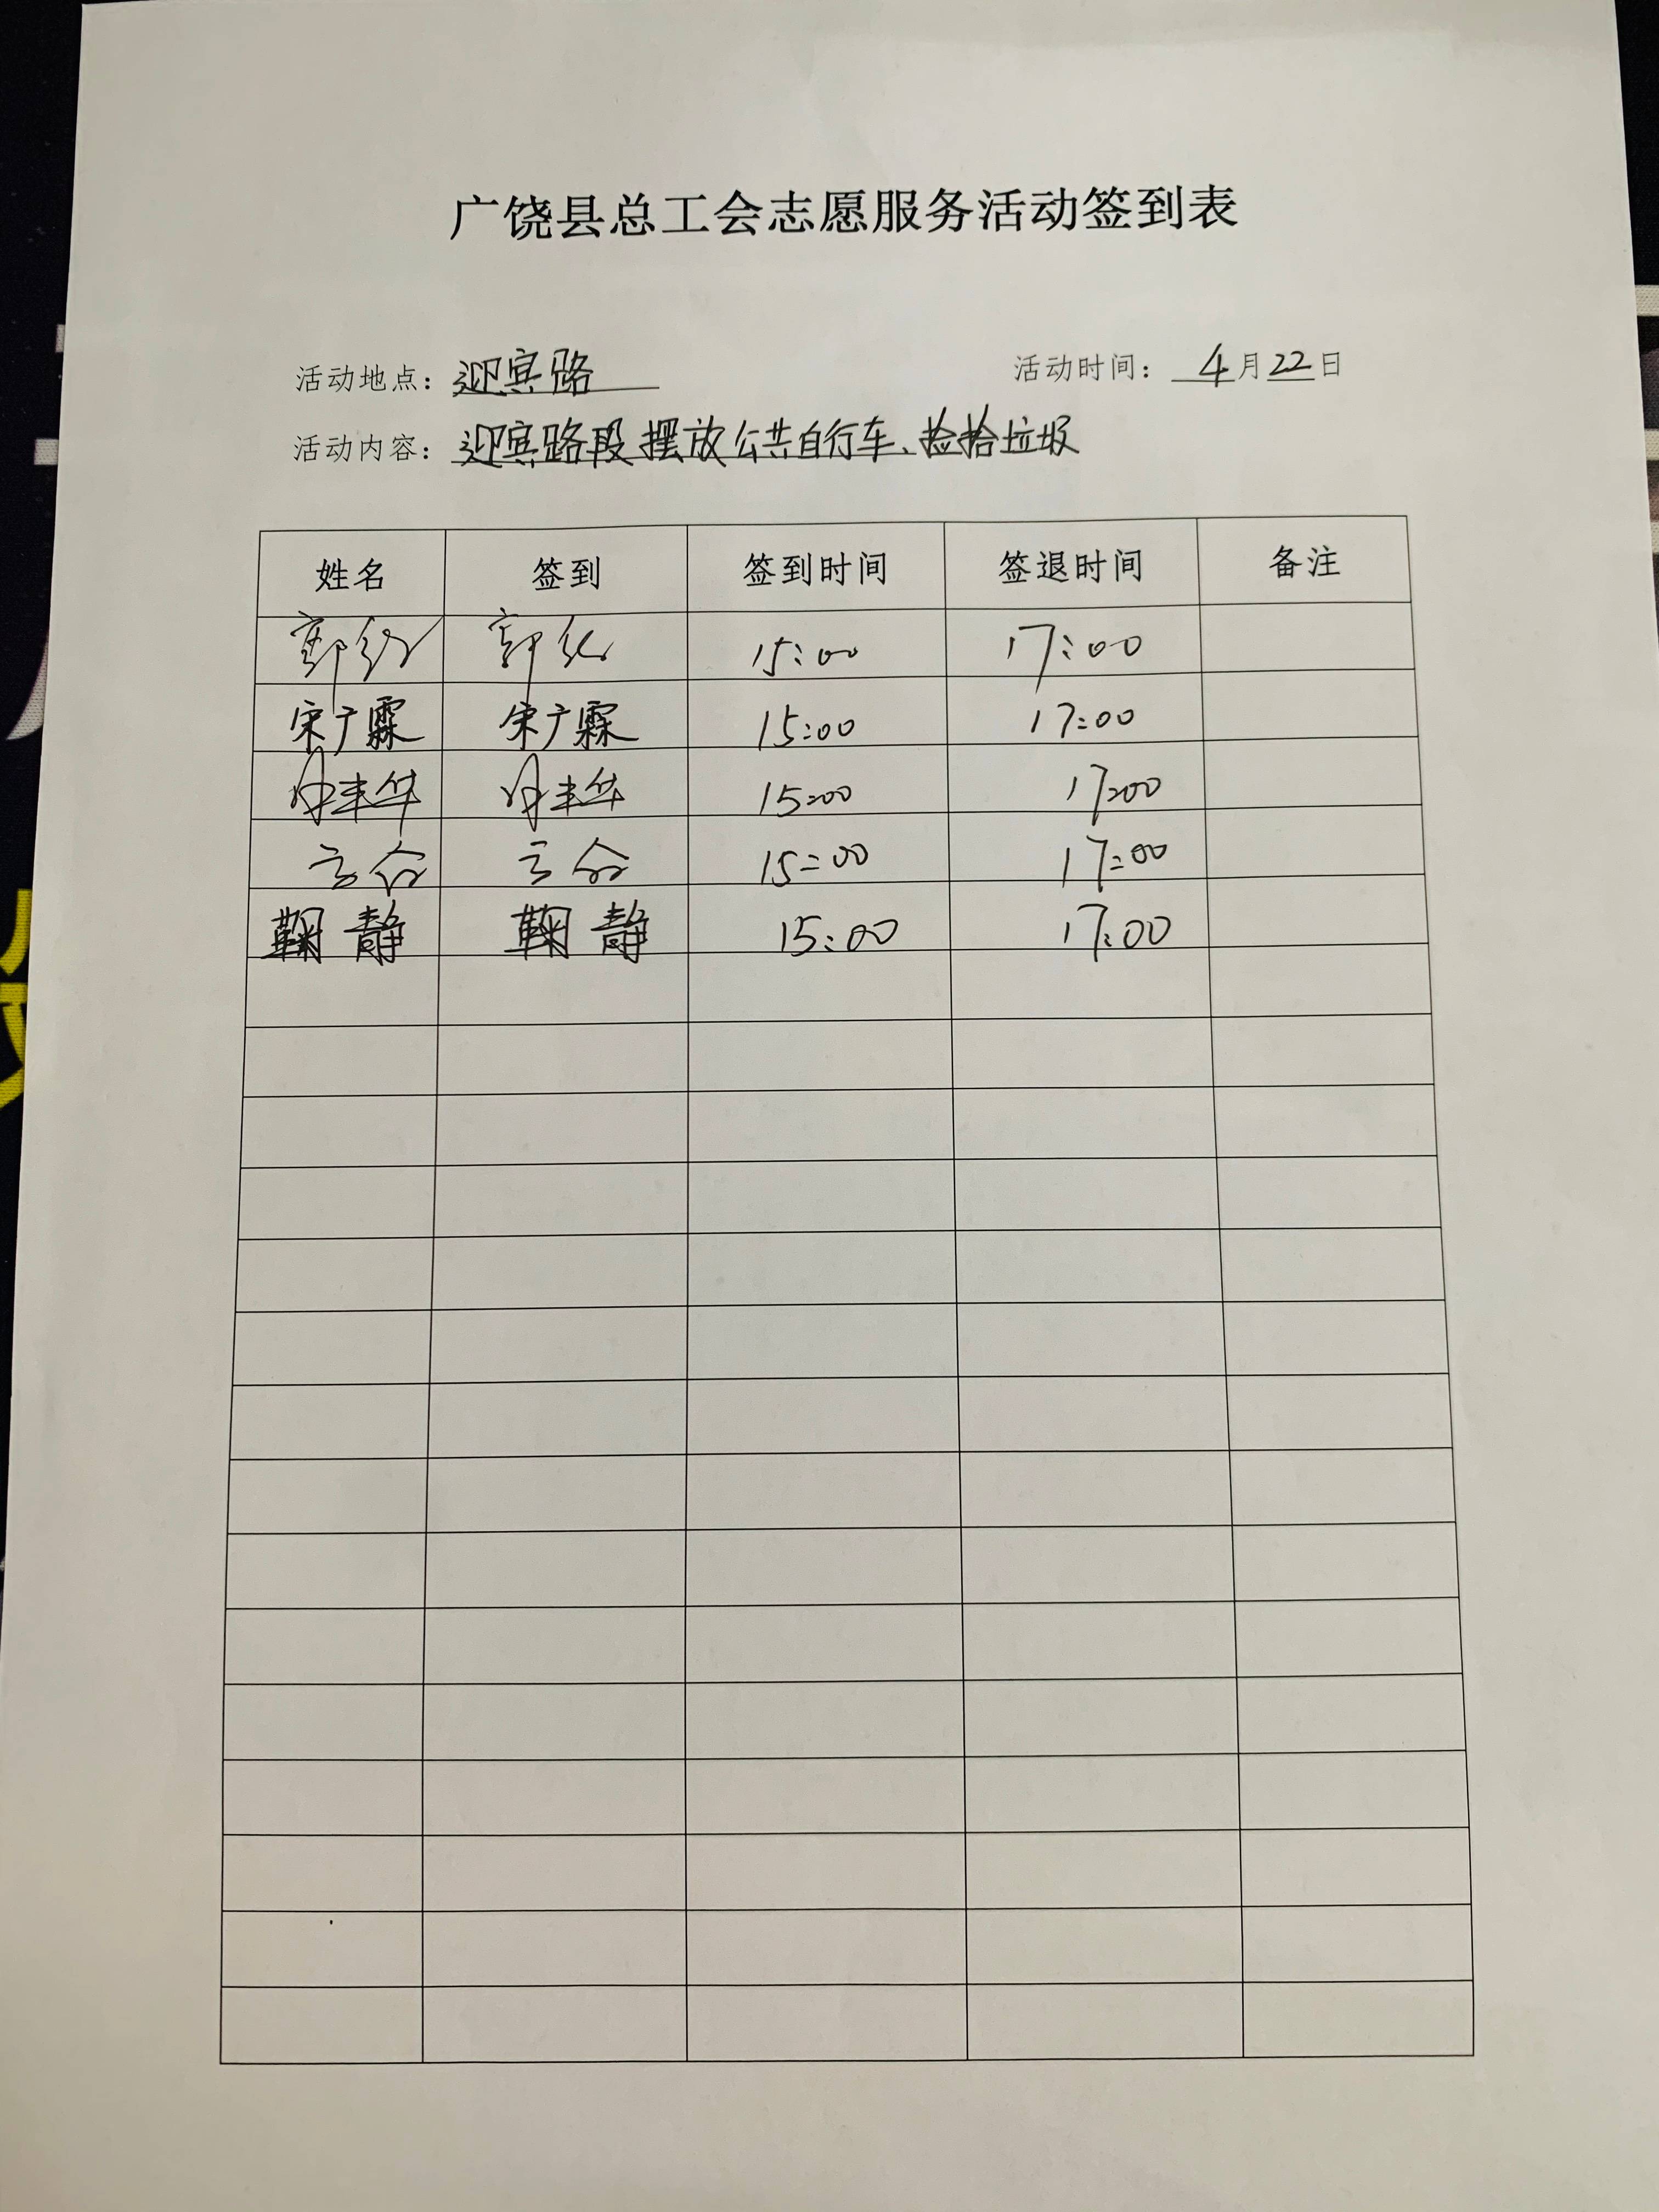 广饶县总工会志愿服务活动签到表
活动地点：迎宾路 活动时间：4月22日
活动内容：迎宾路段摆放公共自行车、捡拾垃圾
姓名 签到 签到时间 签退时间 备注
郭 郭 15:00 17:00
宋广霖 宋广霖 15:00 17:00
丰华 丰华 15:00 17:00
15:00 17:00
鞠静 鞠静 15:00 17:00